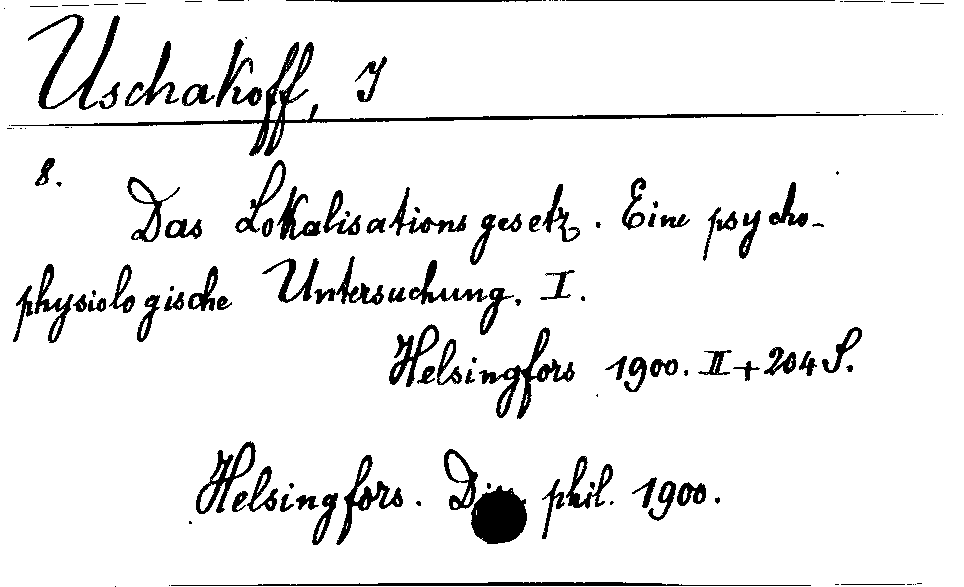 Uschakoff, I
8.
Das Lokalisationsgesetz. Eine psycho-
physiologische Untersuchung. I.
Helsingfors 1900. II+204 S.
Helsingfors. Diss. phil. 1900.